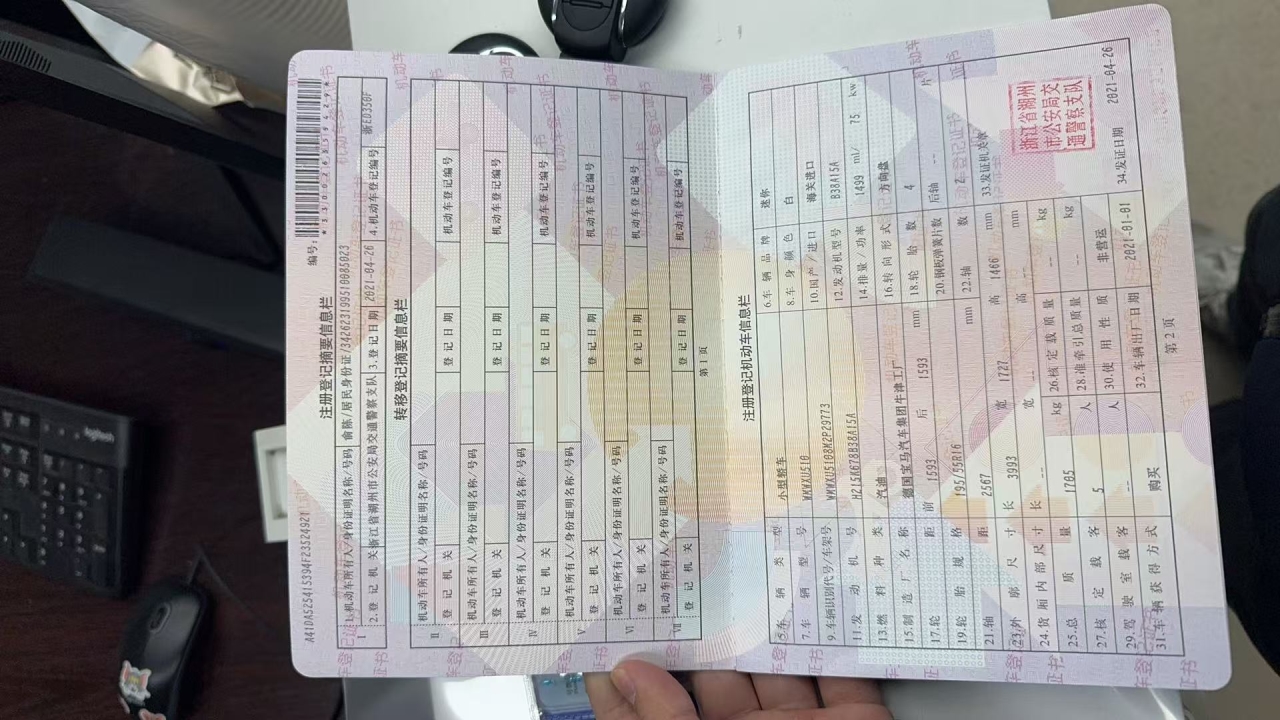 编号:
注册登记摘要信息栏
Ⅰ 1.机动车所有人/身份证明名称/号码 俞陈/居民身份证/342623199510085023
2.登记机关 浙江省湖州市公安局交通警察支队 3.登记日期 2021-04-26 4.机动车登记编号 浙ED350F
转移登记摘要信息栏
Ⅱ 机动车所有人/身份证明名称/号码
登记机关 登记日期 机动车登记编号
Ⅲ 机动车所有人/身份证明名称/号码
登记机关 登记日期 机动车登记编号
Ⅳ 机动车所有人/身份证明名称/号码
登记机关 登记日期 机动车登记编号
Ⅴ 机动车所有人/身份证明名称/号码
登记机关 登记日期 机动车登记编号
Ⅵ 机动车所有人/身份证明名称/号码
登记机关 登记日期 机动车登记编号
Ⅶ 机动车所有人/身份证明名称/号码
登记机关 登记日期 机动车登记编号
第 1 页
注册登记机动车信息栏
5.车辆类型 小型轿车 6.车辆品牌 迷你
7.车辆型号 WMWXU510 8.车身颜色 白
9.车辆识别代号/车架号 WMWXU5108M2P29773 10.国产/进口 海关进口
11.发动机号 H215K678B38A15A 12.发动机型号 B38A15A
13.燃料种类 汽油 14.排量/功率 1499 ml/ 75 kw
15.制造厂名称 德国宝马汽车集团牛津工厂 16.转向形式 方向盘
17.轮距 前 1593 后 1593 mm 18.轮胎数 4
19.轮胎规格 195/55R16 20.钢板弹簧片数 后轴 -- 片
21.轴距 2567 mm 22.轴数 2
23.外廓尺寸 长 3993 宽 1727 高 1466 mm 33.发证机关章
24.货厢内部尺寸 长 -- 宽 -- 高 -- mm
25.总质量 1705 kg 26.核定载质量 -- kg
27.核定载客 5 人 28.准牵引总质量 -- kg
29.驾驶室载客 -- 人 30.使用性质 非营运
31.车辆获得方式 购买 32.车辆出厂日期 2021-01-01 34.发证日期 2021-04-26
浙江省湖州
市公安局交
通警察支队
第 2 页
logitech